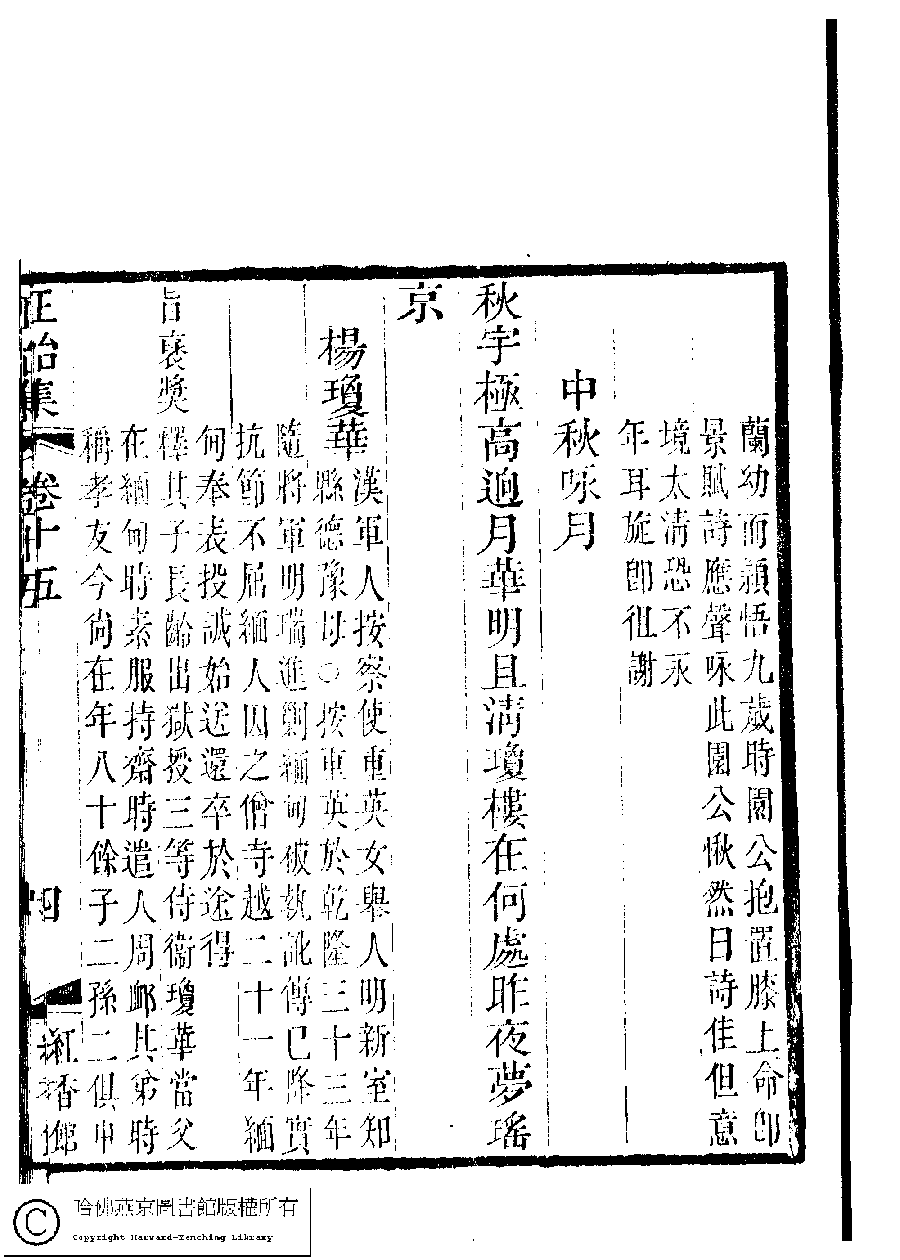 蘭幼而穎悟九歲時園公抱置膝上命即
景賦詩應聲咏此園公愀然曰詩佳但意
境太清恐不永
年耳旋即徂謝
中秋咏月
秋宇極高迥月華明且清瓊樓在何處昨夜夢瑤
京
楊瓊華
漢軍人按察使重英女舉人明新室知
縣德豫母○按重英於乾隆三十三年
隨將軍明瑞進剿緬甸被執訛傳已降實
抗節不屈緬人囚之僧寺越二十一年緬
甸奉表投誠始送還卒於途得
旨褒獎
釋其子長齡出獄授三等侍衞瓊華當父
在緬甸時素服持齋時遣人周卹其弟時
稱孝友今尙在年八十餘子二孫二俱中
正始集
卷十五
四
紅香館
哈佛燕京圖書館版權所有
Copyright Harvard-Yenching Library